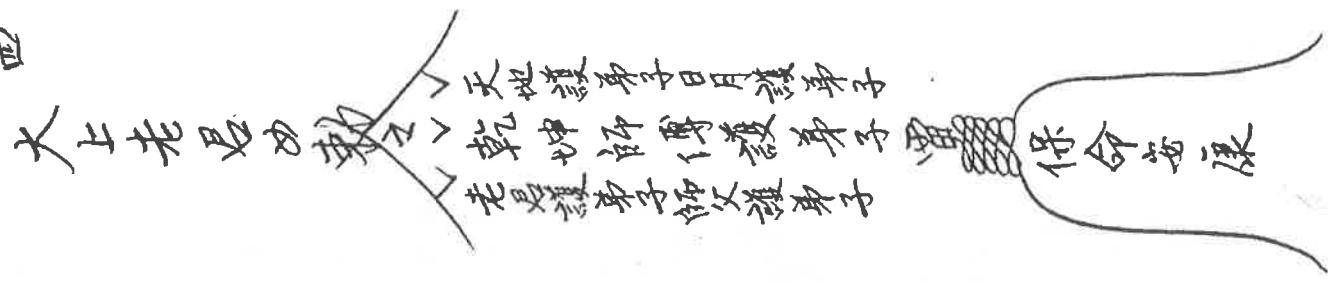 四
大上老君
天地護弟子日月護弟子
乾坤師傅護弟子
老君護弟子師父護弟子
保命安康